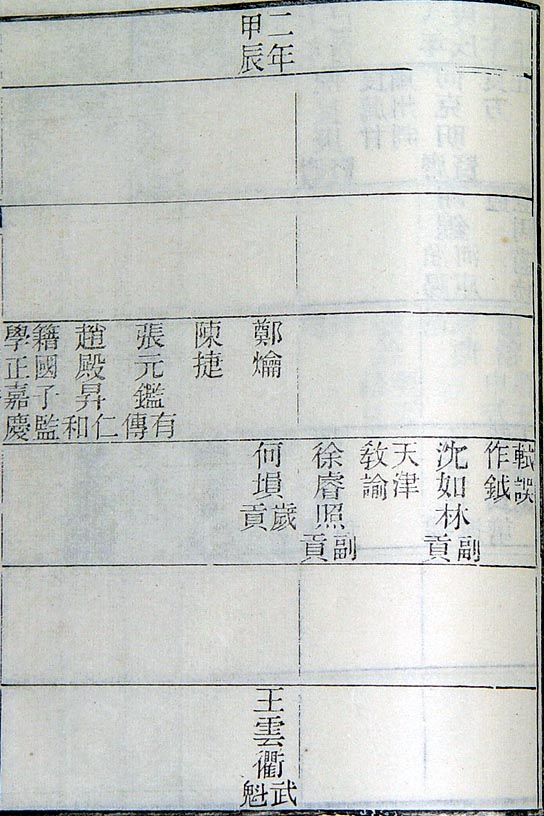 二年
甲辰
鄭爚
陳捷
張元鑑有傳
趙殿昇仁和
籍國子監
學正嘉慶
軾誤
作鉞
沈如林副貢
天津
教諭
徐睿照副貢
何塤歲貢
王雲衢武魁